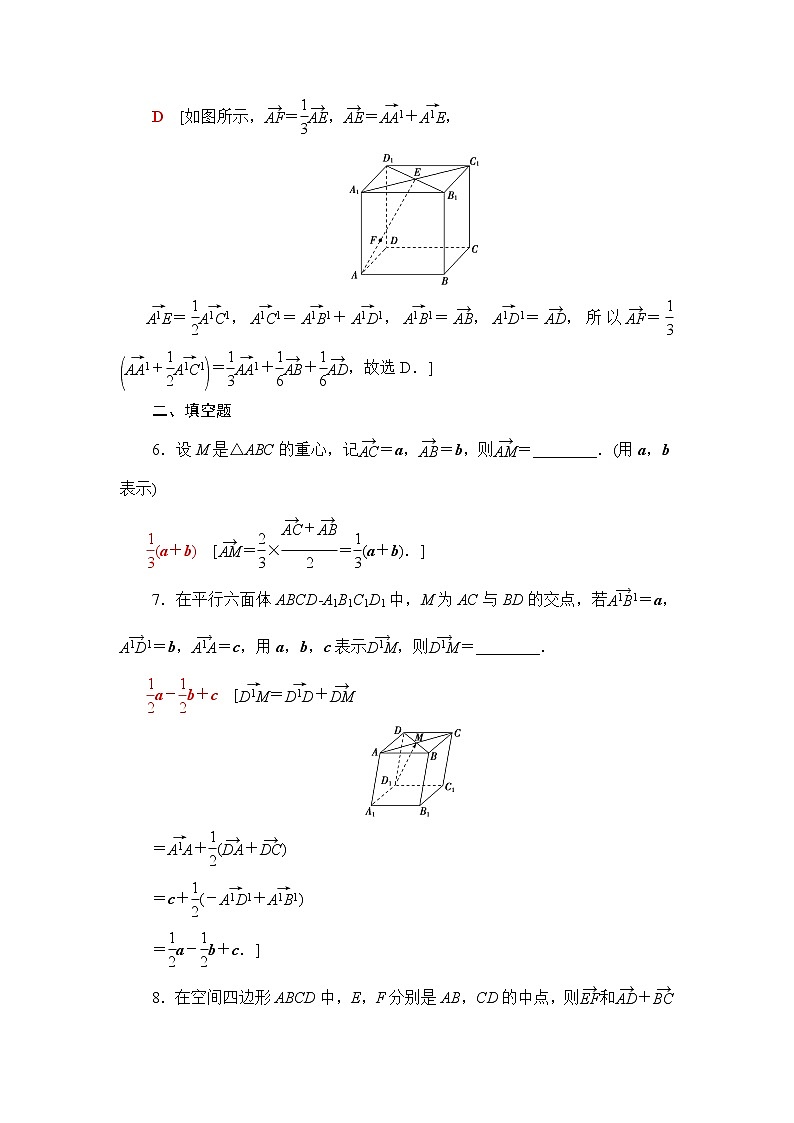 D [如图所示，$\overrightarrow{AF}=\frac{1}{3}\overrightarrow{AE}$，$\overrightarrow{AE}=\overrightarrow{AA_1}+\overrightarrow{A_1E}$，
D₁ C₁
E
A₁ B₁
F D C
A B
$\overrightarrow{A_1E}=\frac{1}{2}\overrightarrow{A_1C_1}$，$\overrightarrow{A_1C_1}=\overrightarrow{A_1B_1}+\overrightarrow{A_1D_1}$，$\overrightarrow{A_1B_1}=\overrightarrow{AB}$，$\overrightarrow{A_1D_1}=\overrightarrow{AD}$，所以$\overrightarrow{AF}=\frac{1}{3}$
$\left(\overrightarrow{AA_1}+\frac{1}{2}\overrightarrow{A_1C_1}\right)=\frac{1}{3}\overrightarrow{AA_1}+\frac{1}{6}\overrightarrow{AB}+\frac{1}{6}\overrightarrow{AD}$，故选 D．]
二、填空题
6．设 M 是△ABC 的重心，记$\overrightarrow{AC}$=a，$\overrightarrow{AB}$=b，则$\overrightarrow{AM}$=________．(用 a，b
表示)
$\frac{1}{3}$(a＋b) [$\overrightarrow{AM}=\frac{2}{3}×\frac{\overrightarrow{AC}+\overrightarrow{AB}}{2}=\frac{1}{3}$(a＋b)．]
7．在平行六面体 ABCD-A₁B₁C₁D₁ 中，M 为 AC 与 BD 的交点，若$\overrightarrow{A_1B_1}$=a，
$\overrightarrow{A_1D_1}$=b，$\overrightarrow{A_1A}$=c，用 a，b，c 表示$\overrightarrow{D_1M}$，则$\overrightarrow{D_1M}$=________．
$\frac{1}{2}$a－$\frac{1}{2}$b＋c [$\overrightarrow{D_1M}=\overrightarrow{D_1D}+\overrightarrow{DM}$
D M C
A B
D₁ C₁
A₁ B₁
=$\overrightarrow{A_1A}+\frac{1}{2}(\overrightarrow{DA}+\overrightarrow{DC})$
=c＋$\frac{1}{2}(-\overrightarrow{A_1D_1}+\overrightarrow{A_1B_1})$
=$\frac{1}{2}$a－$\frac{1}{2}$b＋c．]
8．在空间四边形 ABCD 中，E，F 分别是 AB，CD 的中点，则$\overrightarrow{EF}$和$\overrightarrow{AD}+\overrightarrow{BC}$